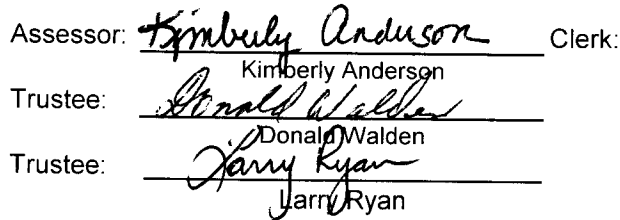 Assessor: Kimberly Anderson Clerk:
Kimberly Anderson
Trustee: Donald Walden
Donald Walden
Trustee: Larry Ryan
Larry Ryan